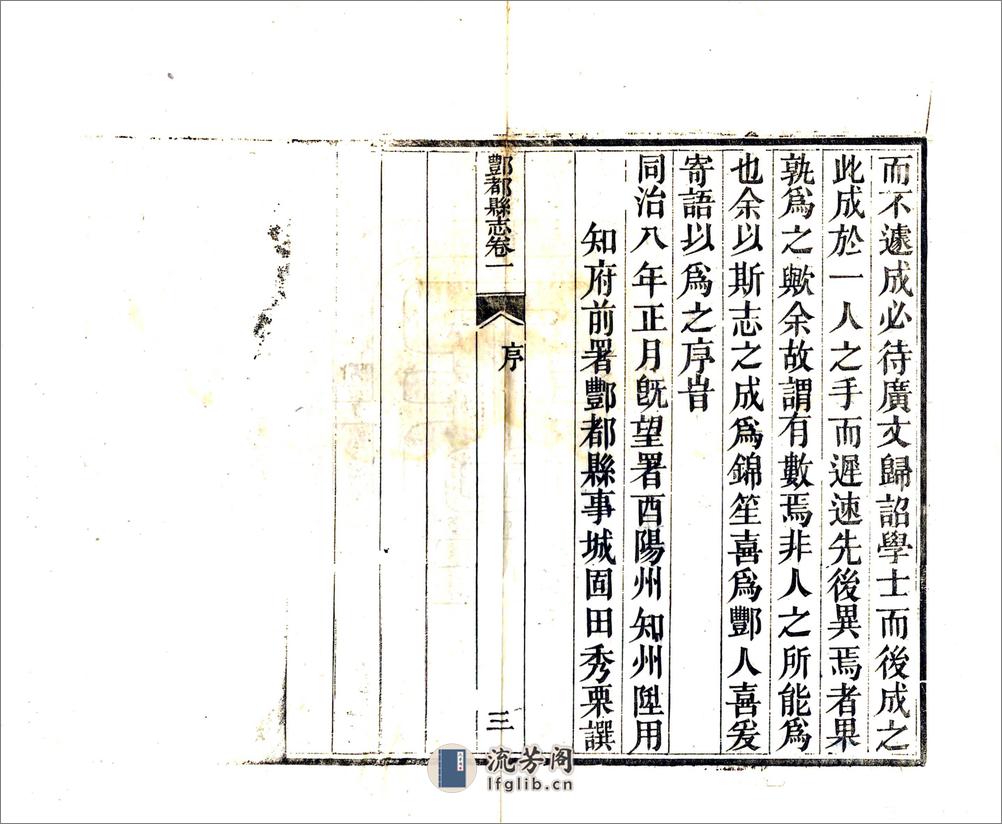 而不遽成必待廣文歸詔學士而後成之
此成於一人之手而遲速先後異焉者果
孰爲之歟余故謂有數焉非人之所能爲
也余以斯志之成爲錦笙喜爲酆人喜爰
寄語以爲之序旹
同治八年正月旣望署酉陽州知州陞用
知府前署酆都縣事城固田秀栗譔
酆都縣志卷一
序
三
流芳阁
lfglib.cn